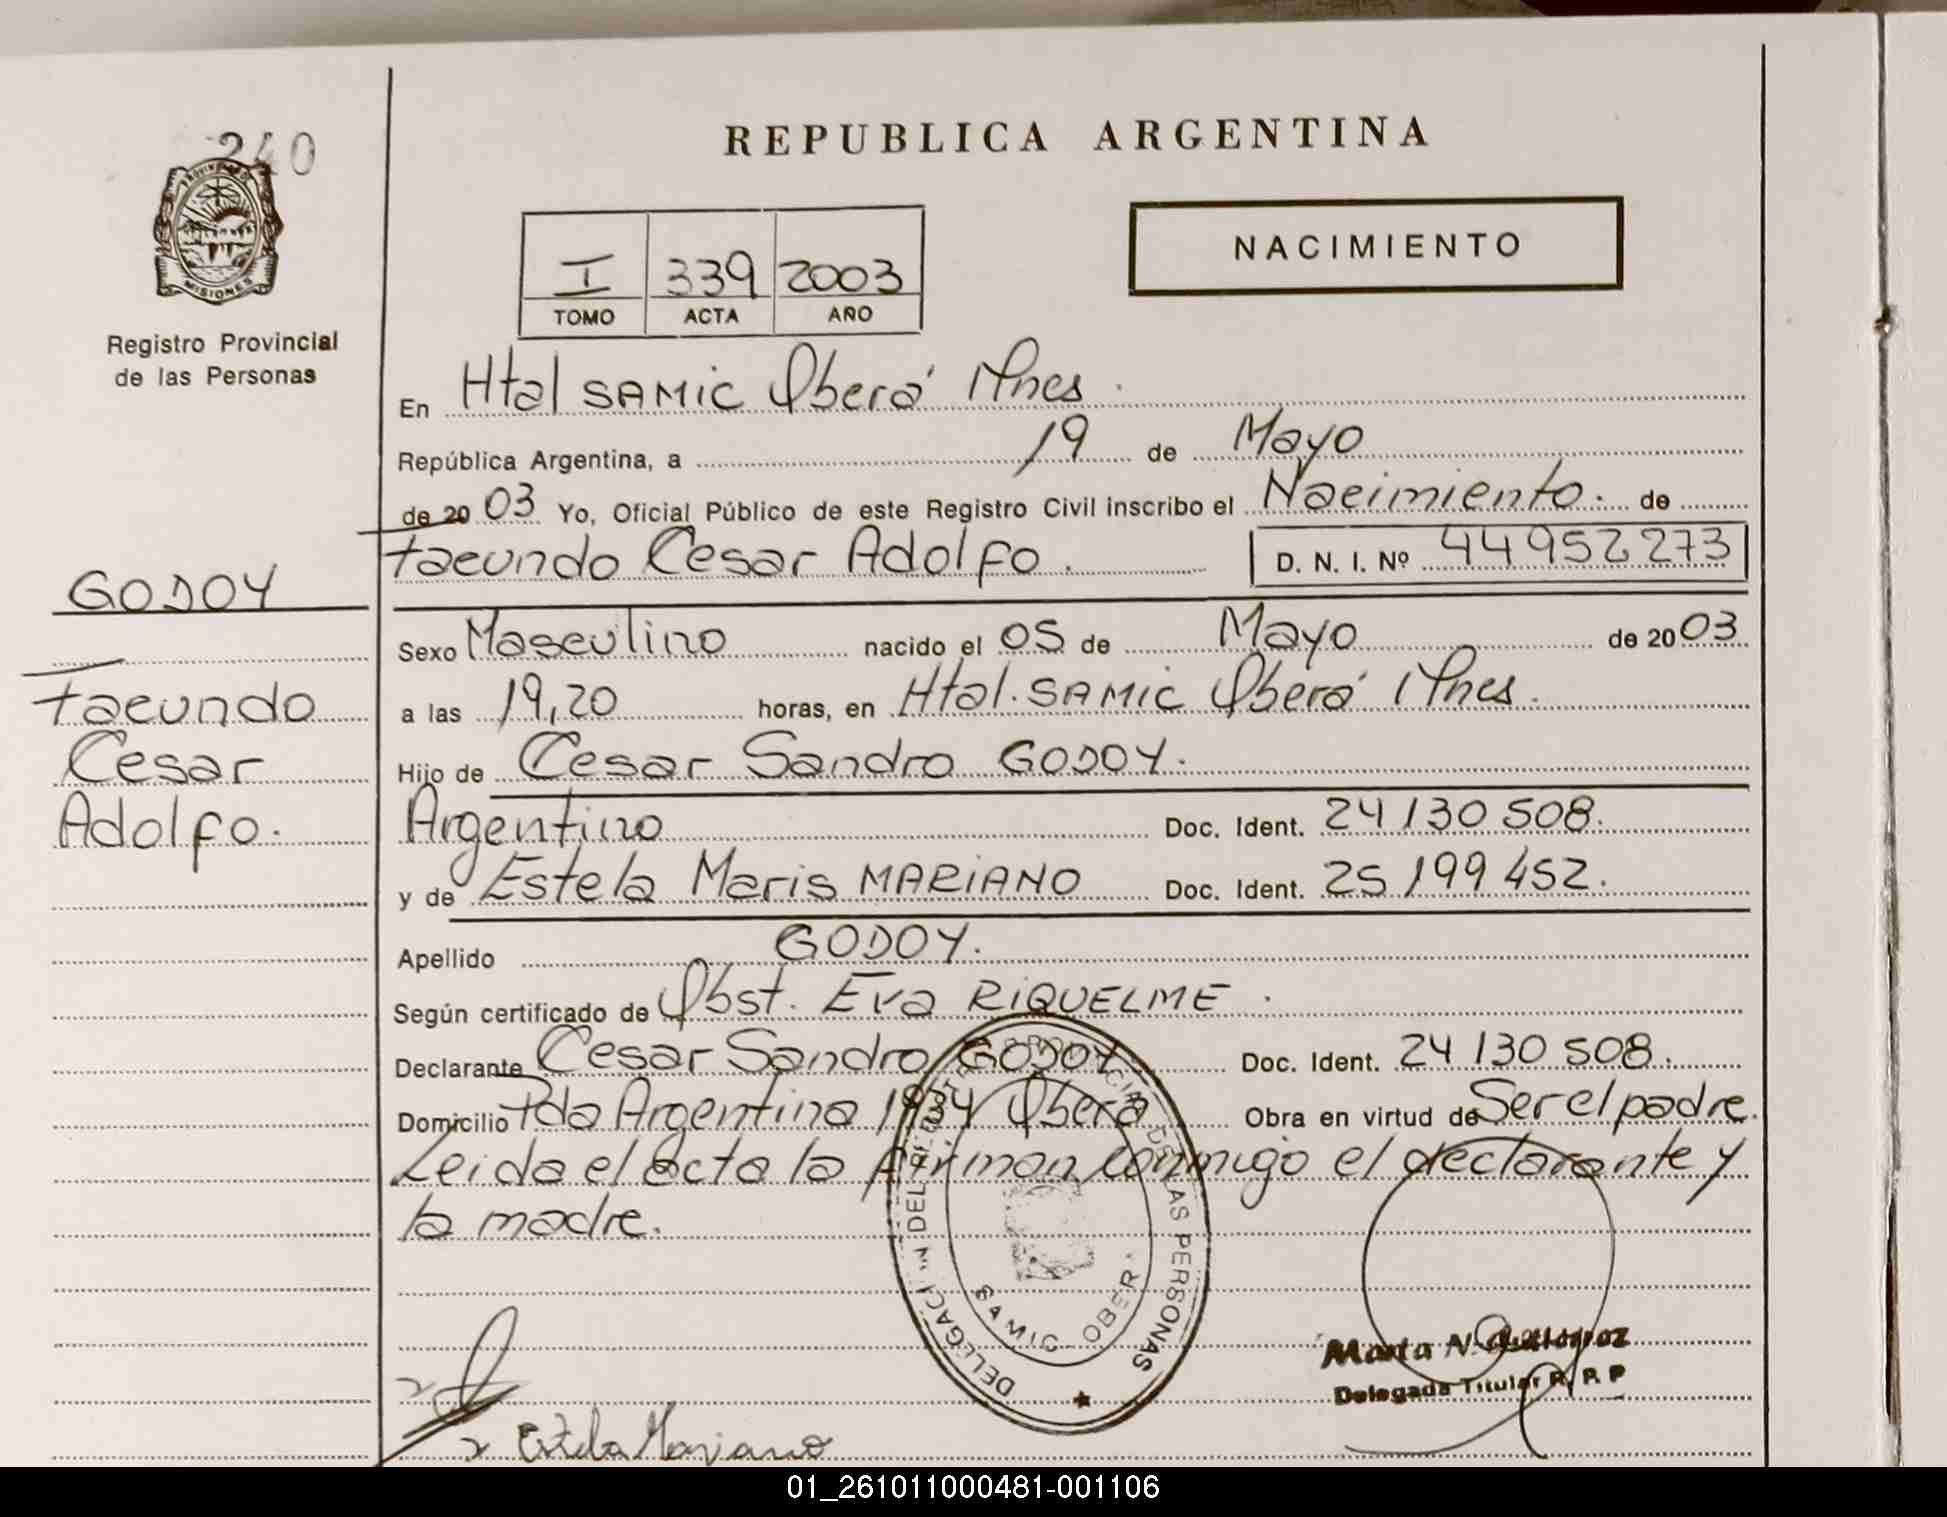 240
PROVINCIA DE
MISIONES
Registro Provincial
de las Personas
REPUBLICA ARGENTINA
NACIMIENTO
I 339 2003
TOMO ACTA AÑO
En Htal SAMIC Oberá Mnes.
República Argentina, a 19 de Mayo
de 20 03 Yo, Oficial Público de este Registro Civil inscribo el Nacimiento. de
Facundo Cesar Adolfo. D. N. I. Nº 44952273
GODOY
Facundo
Cesar
Adolfo.
Sexo Masculino nacido el 05 de Mayo de 20 03
a las 19,20 horas, en Htal. SAMIC Oberá Mnes.
Hijo de Cesar Sandro GODOY.
Argentino Doc. Ident. 24 130 508.
y de Estela Maris MARIANO Doc. Ident. 25 199 452.
Apellido GODOY.
Según certificado de Obst. Eva RIQUELME.
Declarante Cesar Sandro GODOY Doc. Ident. 24 130 508.
Domicilio Pda Argentina Oberá Obra en virtud de Ser el padre.
Leida el acta la firman conmigo el declarante y
la madre.
DELEGACI N DEL REGISTRO PROVINCIAL DE LAS PERSONAS
SAMIC - OBER
Marta N. Gutierrez
Delegada Titular R. P. P
Estela Mariano
01_261011000481-001106